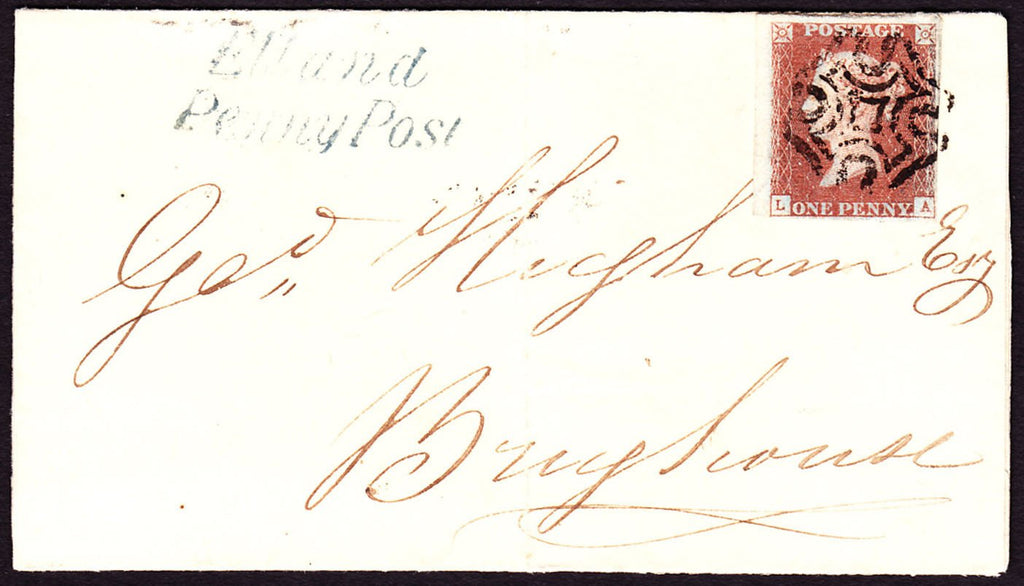 Elland
Penny Post
POSTAGE
L ONE PENNY A
Geo,, Higham Esq
Brighouse